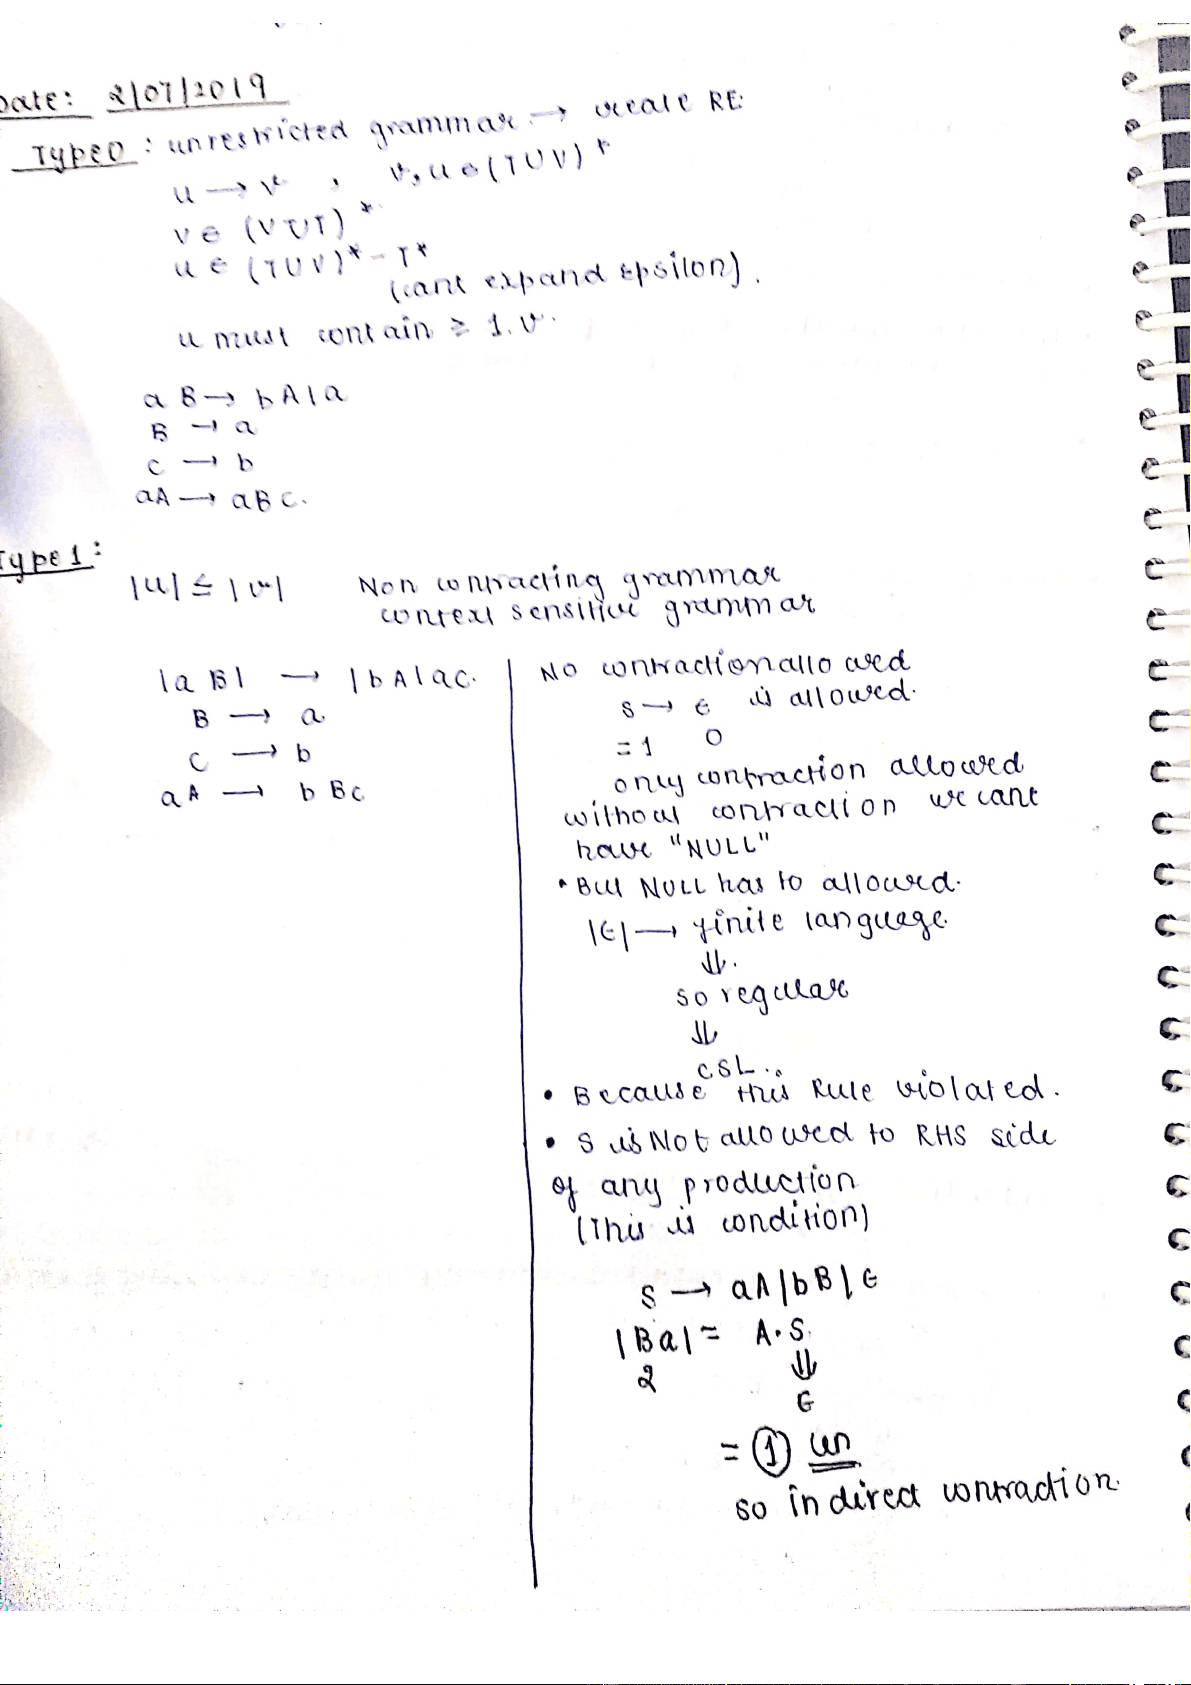 Date: 2/07/2019
Type0: unrestricted grammar → create RE.
u → v , v, u ∈ (T ∪ V)*
v ∈ (V ∪ T)*
u ∈ (T ∪ V)* - T*
(cant expand Epsilon).
u must contain ≥ 1. V.
aB → bA | a
B → a
C → b
aA → aBC.
Type1:
|u| ≤ |v| Non contracting grammar
context sensitive grammar
|aB| → |bA|ac.
B → a
C → b
aA → bBc
No contraction allowed
S → ϵ is allowed.
= 1 0
only contraction allowed
without contraction we cant
have "NULL"
• But NULL has to allowed.
|ϵ| → finite language.
⇓.
so regular
⇓
CSL..
• Because this Rule violated.
• S is Not allowed to RHS side
of any production
(This is condition)
S → aA | bB | ϵ
|Ba| = A.S.
2 ⇓
ϵ
= ① un
so indirect contraction.